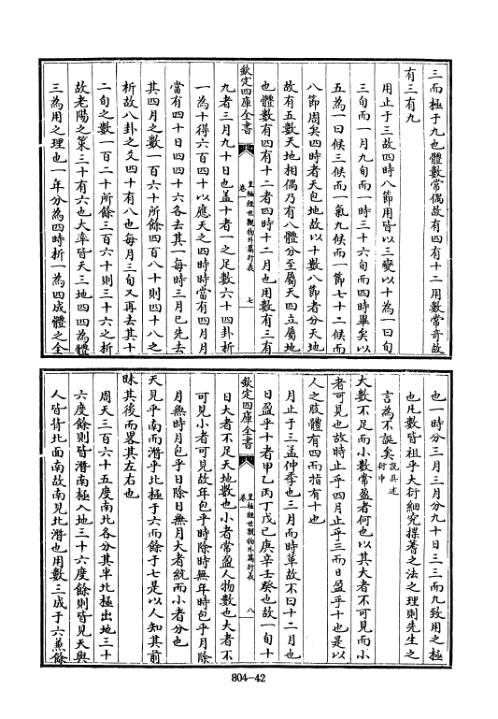 三而極于九也體數常偶故有四有十二用數常奇故
有三有九
用止于三故四時八節用皆以三變以十為一日旬
三旬而一月九旬而一時三十六旬而四時畢矣以
五為一日候三候而一氣九候而一節七十二候而
八節周矣四時者天包地故以十數八節者分天地
故有五數天地相偶乃有八體分至屬天四立屬地
也體數有四有十二者四時十二月也用數有三有
欽定四庫全書
皇極經世觀物外篇衍義
卷一
七
九者三月九十日也蓋十者一之足數六十四卦析
一為十得六百四十以應天之四時時當有四月月
當有四十日四四十六各去其一每時三月已先去
其四月之數一百六十所餘四百八十則四十八之
析故八卦之爻四十有八也每月三旬又再去其十
二旬之數一百二十所餘三百六十則三十六之析
故老陽之策三十有六也大率皆天三地四四為體
三為用之理也一年分為四時析一為四成體之全
也一時分三月三月分九十日三三而九致用之極
也凡數皆祖乎大衍細究揲蓍之法之理則先生之
言為不誣矣說具述
衍中
大數不足而小數常盈者何也以其大者不可見而小
者可見也故時止乎四月止乎三而日盈乎十也是以
人之肢體有四而指有十也
月止于三孟仲季也三月而時革故不曰十二月也
日盈乎十者甲乙丙丁戊己庚辛壬癸也故一旬十
欽定四庫全書
皇極經世觀物外篇衍義
卷一
八
日大者不足天地數也小者常盈人物數也大者不
可見小者可見故年包乎時除時無年時包乎月除
月無時月包乎日除日無月大者統而小者分也
天見乎南而潛乎北極于六而餘于七是以人知其前
昧其後而畧其左右也
周天三百六十五度南北各分其半北極出地三十
六度餘則皆潛南極入地三十六度餘則皆見天與
人皆背北面南故南見北潛也用數三成于六兼餘
804-42